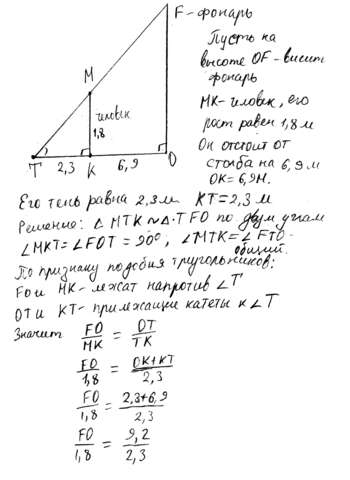 F - фонарь
Пусть на
высоте OF - висит
фонарь
M
человек
1,8
MK - человек, его
рост равен 1,8 м
Он отстоит от
столба на 6,9 м
OK = 6,9м.
T 2,3 K 6,9 O
Его тень равна 2,3 м KT = 2,3 м
Решение: △ MTK ~ △ TFO по двум углам
∠MKT = ∠FOT = 90°, ∠MTK = ∠FTO -
общий.
По признаку подобия треугольников:
FO и MK - лежат напротив ∠T
OT и KT - прилежащие катеты к ∠T
Значит FO/MK = OT/TK
FO/1,8 = OK+KT/2,3
FO/1,8 = 2,3+6,9/2,3
FO/1,8 = 9,2/2,3